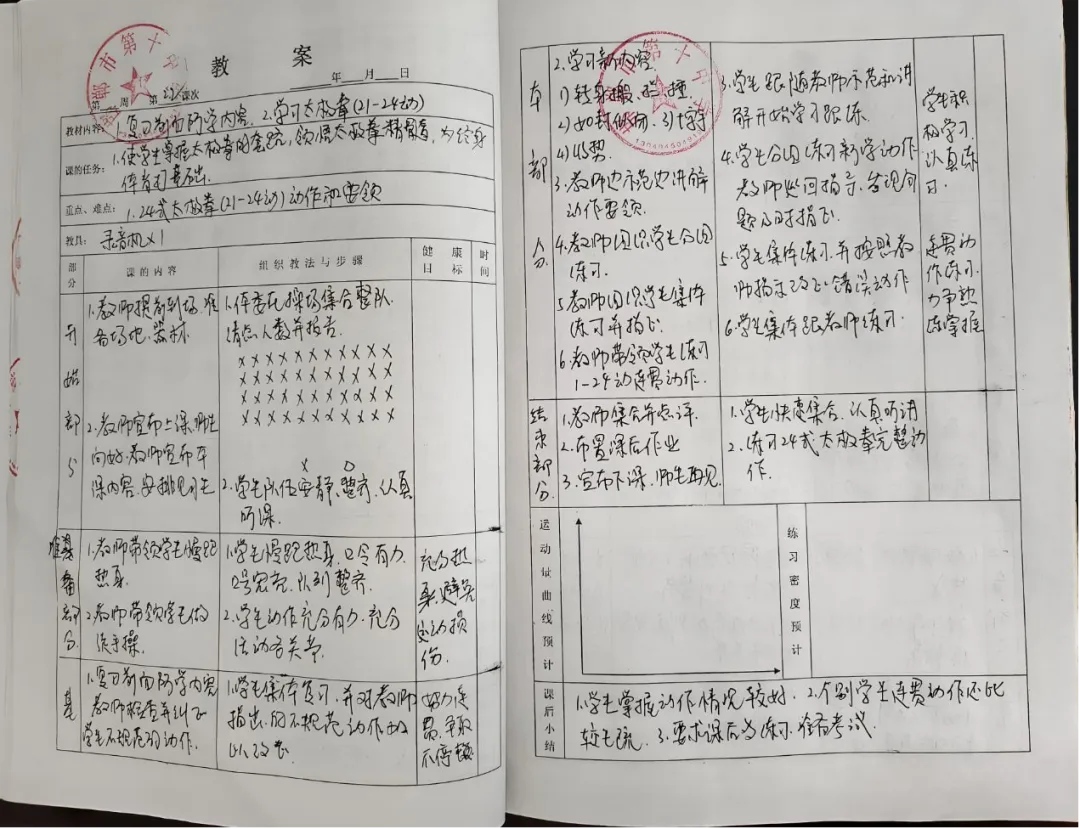 教案
年 月 日
第 周 第 课次
教材内容: 1.复习前面所学内容. 2.学习太极拳(21-24动)
课的任务: 1.使学生掌握太极拳的套路,领悟太极拳精髓,为终身
体育打基础.
重点、难点: 1.24式太极拳(21-24动)动作和要领
教具: 录音机×1
部分 课的内容 组织教法与步骤 健康目标 时间
开始部分
1.教师提前到场.准
备场地.器材.
2.教师宣布上课.师生
问好.教师宣布本
课内容.安排见习生
1.体委在操场集合整队.
清点人数并报告
x x x x x x x x x x x
x x x x x x x x x x x
x x x x x x x x x x x
x x x x x x x x x x x
x o
2.学生队伍安静、整齐.认真
听课.
准备部分
1.教师带领学生慢跑
热身.
2.教师带领学生做
徒手操.
1.学生慢跑热身.口令有力.
口号宏亮.队列整齐.
2.学生动作充分有力.充分
活动各关节.
充分热
身.避免
运动损
伤.
基
1.复习前面所学内容
教师检查并纠正
学生不规范的动作.
1.学生集体复习.并对教师
指出的不规范动作加
以改正
努力连
贯.争取
不停顿
本部分
2.学习新内容
1)转身搬、拦、捶
2)如封似闭. 3)十字手
4)收势
3.教师边示范边讲解
动作要领.
4.教师组织学生分组
练习.
5.教师组织学生集体
练习并指正.
6.教师带领学生练习
1-24动连贯动作.
3.学生跟随教师示范和讲
解开始学习跟练.
4.学生分组练习新学动作
教师巡回指导.发现问
题及时指正.
5.学生集体练习.并按照教
师指定改正错误动作
6.学生集体跟教师练习.
学生积
极学习.
认真练
习
连贯动
作练习.
力争熟
练掌握
结束部分
1.教师集合并点评.
2.布置课后作业
3.宣布下课.师生再见.
1.学生快速集合.认真听讲
2.练习24式太极拳完整动
作.
运动量曲线预计
练习密度预计
课后小结
1.学生掌握动作情况较好. 2.个别学生连贯动作还比
较生疏. 3.要求课后多练习.准备考试.